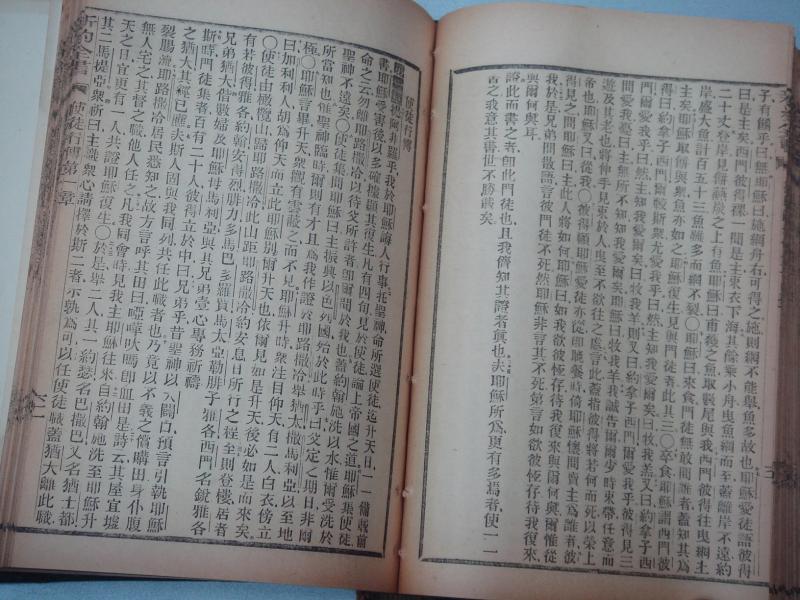 子有餌乎曰無耶穌曰施網舟右可得之施則網不能舉魚多故也耶穌愛徒語彼得
曰是主矣西門彼得裸聞是主束衣下海其餘乘小舟曳魚網而至蓋離岸不遠約
二十丈登岸見餅熾炭之上有魚耶穌曰甫獲之魚取數尾與我西門彼得往曳網上
岸盛大魚計百五十三魚雖多而網不裂○耶穌曰來食門徒無敢問誰者蓋知其為
主矣耶穌取餅與衆魚亦如之耶穌復生見與門徒者此其三○卒食耶穌謂西門彼
得曰約拿子西門爾較斯衆尤愛我乎曰然主知我愛爾矣曰牧我羔又曰約拿子西
門爾愛我乎曰然主知我愛爾矣曰牧我羊則又曰約拿子西門爾愛我乎彼得見三
問愛我憂曰主無所不知知我愛爾矣耶穌曰牧我羊我誠告爾爾少時束帶任意而
遊及其老也將伸手見束於人曳至不欲往之處言此蓋指彼得將若何而死以榮上
帝也耶穌又曰從我○彼得顧耶穌愛徒亦從即晚餐時倚耶穌懷問賣主為誰者彼
得見之問耶穌曰主此人將如何耶穌曰如我欲彼恆存待我復來與爾何與爾惟從
我於是兄弟間徧語言彼門徒不死然耶穌非言其不死第言如欲彼恆存待我復來
與爾何與耳
證此而書之者即此門徒也且我儕知其證者真也夫耶穌所為更有多焉者使一一
書之我意其書世不勝載矣
使徒行傳
提阿非羅乎我於耶穌誨人行事託聖神命所選使徒迄升天日一一備載前
書耶穌受害後以多確據顯其復生凡有四旬見於使徒論上帝國之道耶穌集使徒
命之云勿離耶路撒冷以待父所許者即爾聞於我也蓋約翰施洗以水惟爾受洗於
聖神不遠矣○使徒集問耶穌曰主振興以色列國殆於此時乎曰父定之期日非爾
所當知也惟聖神臨時爾則有才且為我作證於耶路撒冷舉猶太撒馬利亞以至地
極○耶穌言畢升天衆觀有雲蔽之而不見耶穌升時衆注目仰天有二人白衣傍立
曰加利利人胡為仰天而立此耶穌別爾升天也依爾見如是升天後必如是而來矣
○使徒由橄欖山歸耶路撒冷此山距耶路撒冷約安息日所行之程至則登樓居者
有若彼得雅各約翰安得烈腓力多馬巴多羅買馬太亞勒腓子雅各西門名銳雅各
兄弟猶大偕數婦及耶穌母馬利亞與其兄弟壹心專務祈禱
斯時門徒集者百有二十人彼得立於中曰兄弟乎昔聖神以大闢口預言引執耶穌
之猶大其經已應夫斯人固與我同列共任此職者也乃竟以不義之償購田身仆腹
裂腸流耶路撒冷居民悉知之故方言呼其田曰亞革大馬即血田是詩云其屋宜墟
無人宅之其督之職他人任之凡我同會時見我主耶穌往來自約翰施洗至耶穌升
天之日宜更有一人共證耶穌復生○於是舉二人其一約瑟名巴撒巴又名猶士都
其二馬提亞衆祈曰主識衆心請擇於斯二者示孰為可以任使徒職蓋猶大離此職
新約全書 使徒行傳第一章